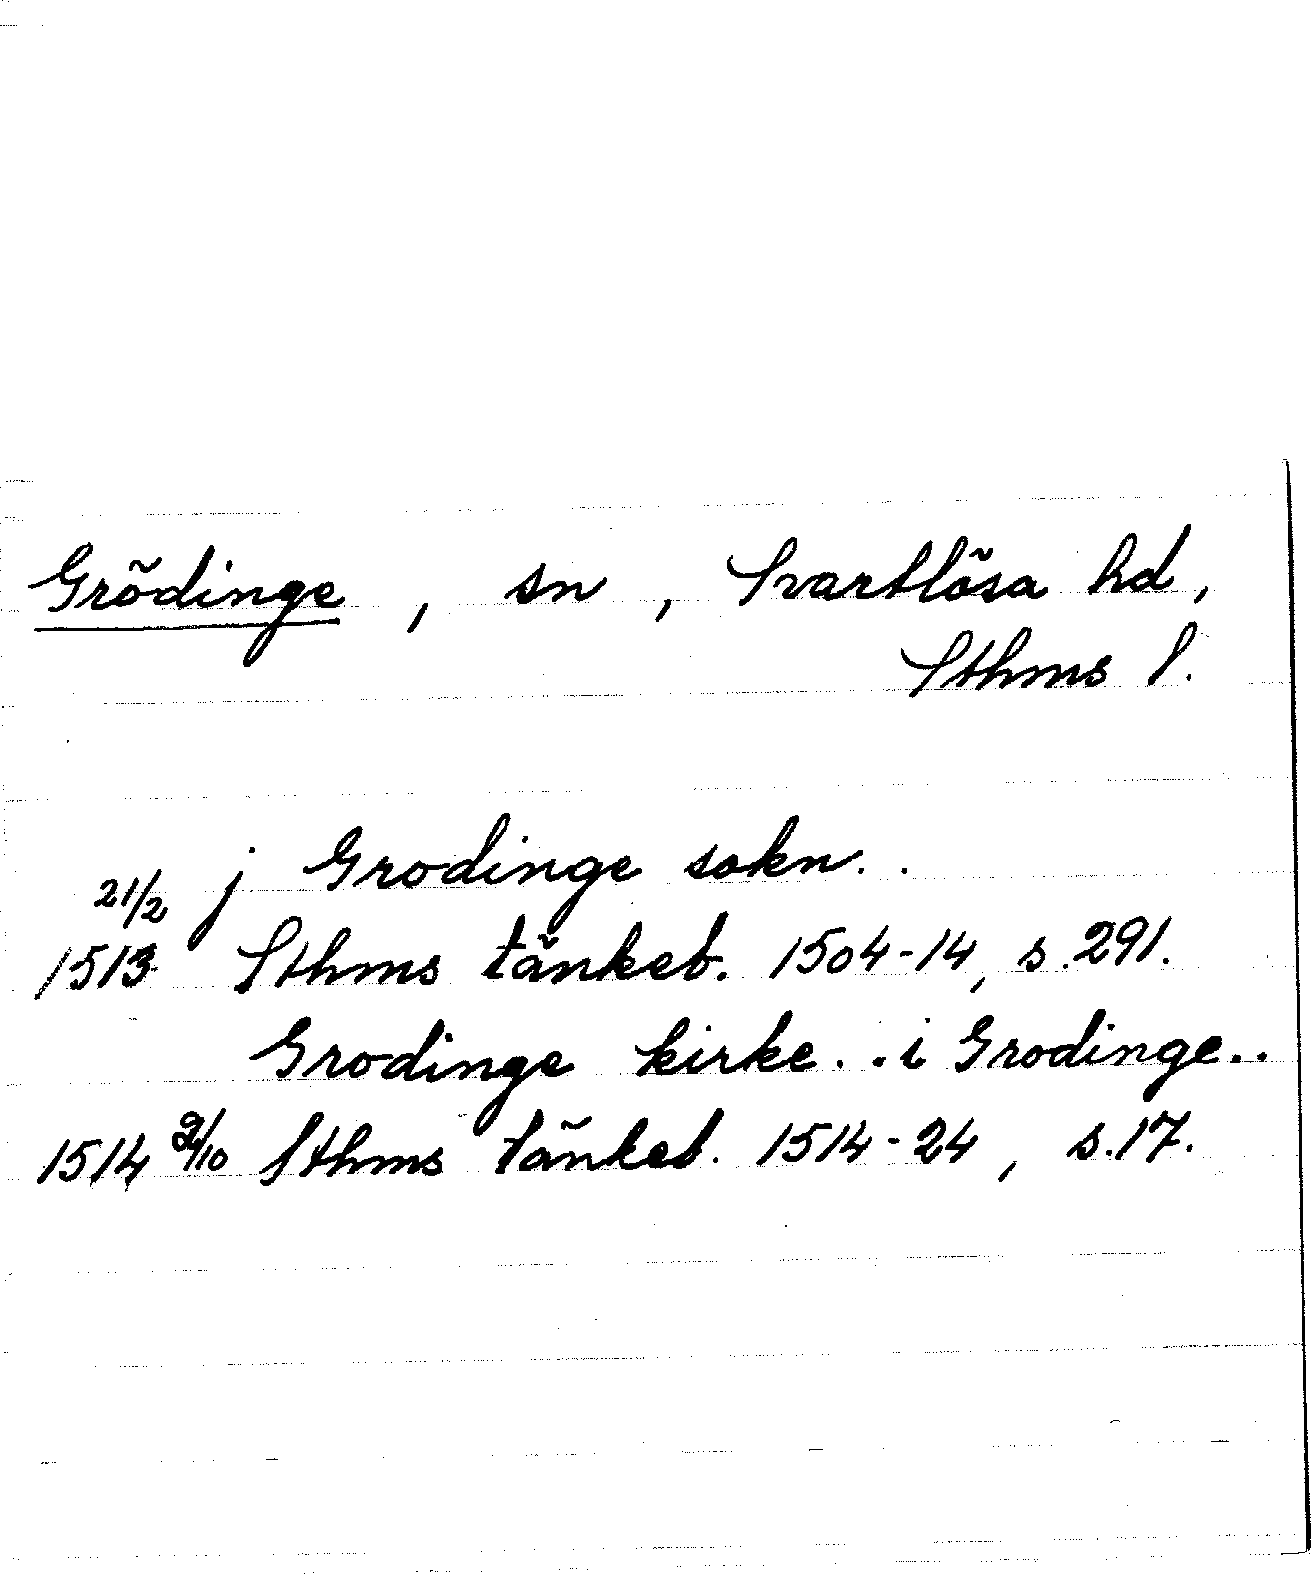 Grödinge, sn, Svartlösa hd,
Sthms l.
j Grodinge sokn..
21/2 1513 Sthms tänkeb. 1504-14, s.291.
Grodinge kirke...i Grodinge..
1514 2/10 Sthms tänkeb. 1514-24, s.17.